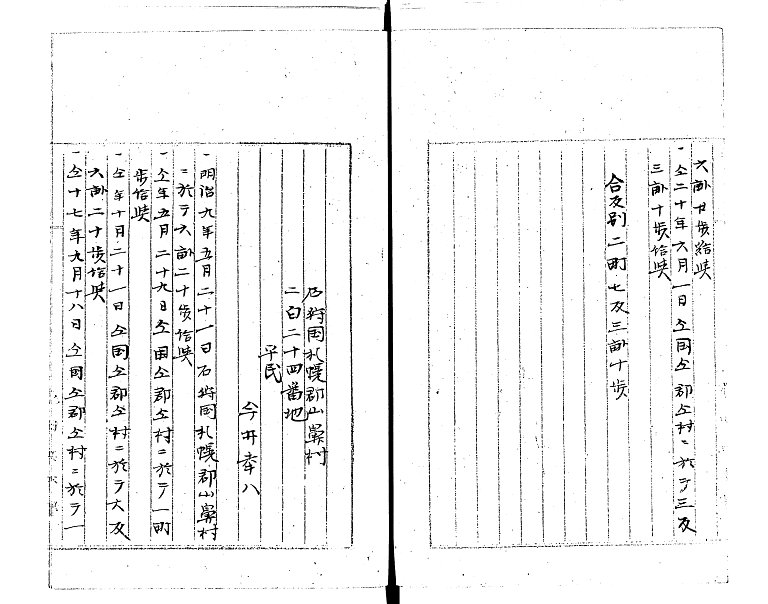 六畝廿歩給與
一仝二十年六月一日仝国仝郡仝村ニ於テ三反
三畝十歩給與
合反別二町七反三畝十歩
石狩国札幌郡山鼻村
二百二十四番地
平民
今井幸八
一明治九年五月二十一日石狩国札幌郡山鼻村
ニ於テ六畝二十歩給與
一仝年五月二十九日仝国仝郡仝村ニ於テ一町
歩給與
一仝年十月二十一日仝国仝郡仝村ニ於テ六反
六畝二十歩給與
一仝十七年九月十八日仝国仝郡仝村ニ於テ一